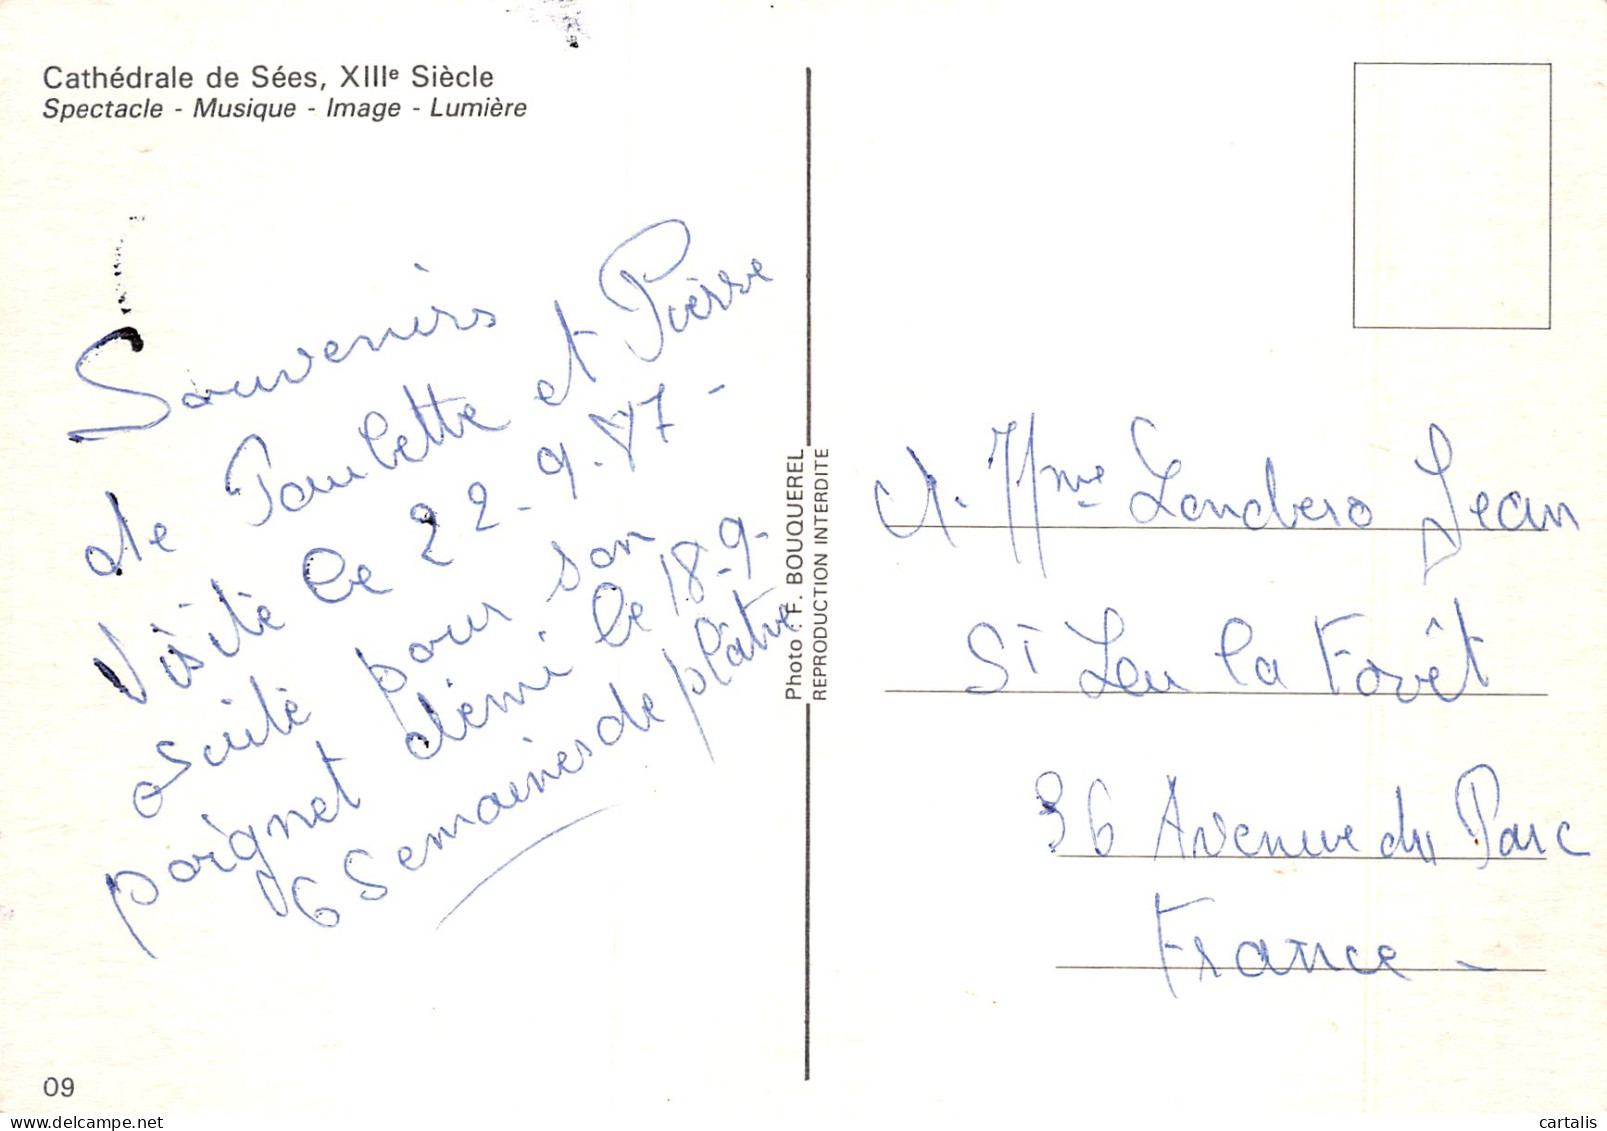 Cathédrale de Sées, XIIIe Siècle
Spectacle - Musique - Image - Lumière
Souvenirs
de Paulette et Pierre
Visité le 22-9.87-
suite pour son
poignet démi le 18-9-
6 Semaines de plâtre
09
Photo : F. BOUQUEREL
REPRODUCTION INTERDITE
M. Mme Londero Jean
St Leu la Forêt
36 Avenue du Parc
France -
cartalis